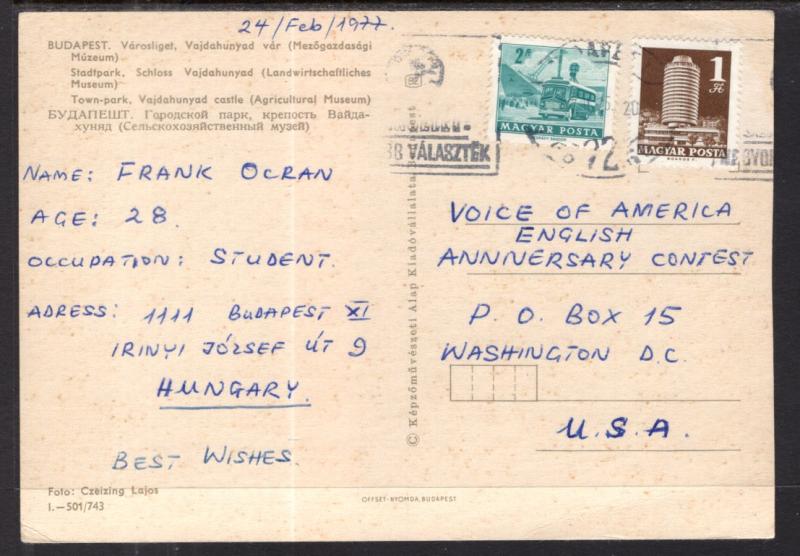 24/Feb/1977.
BUDAPEST. Városliget, Vajdahunyad vár (Mezőgazdasági
Múzeum)
Stadtpark, Schloss Vajdahunyad (Landwirtschaftliches
Museum)
Town-park, Vajdahunyad castle (Agricultural Museum)
БУДАПЕШТ. Городской парк, крепость Вайда-
хуняд (Сельскохозяйственный музей)
NAME: FRANK OCRAN
AGE: 28.
OCCUPATION: STUDENT.
ADRESS: 1111 BUDAPEST XI
IRINYI JÓZSEF ÚT 9
HUNGARY.
BEST WISHES.
Foto: Czeizing Lajos
I.—501/743
© Képzőművészeti Alap Kiadóvállalata, Budapest
OFFSET-NYOMDA, BUDAPEST
2Ft
MAGYAR POSTA
1 Ft
MAGYAR POSTA
VÁLASZTÉK
20
72
VOICE OF AMERICA
ENGLISH
ANNIVERSARY CONTEST
P. O. BOX 15
WASHINGTON D.C.
U.S.A.